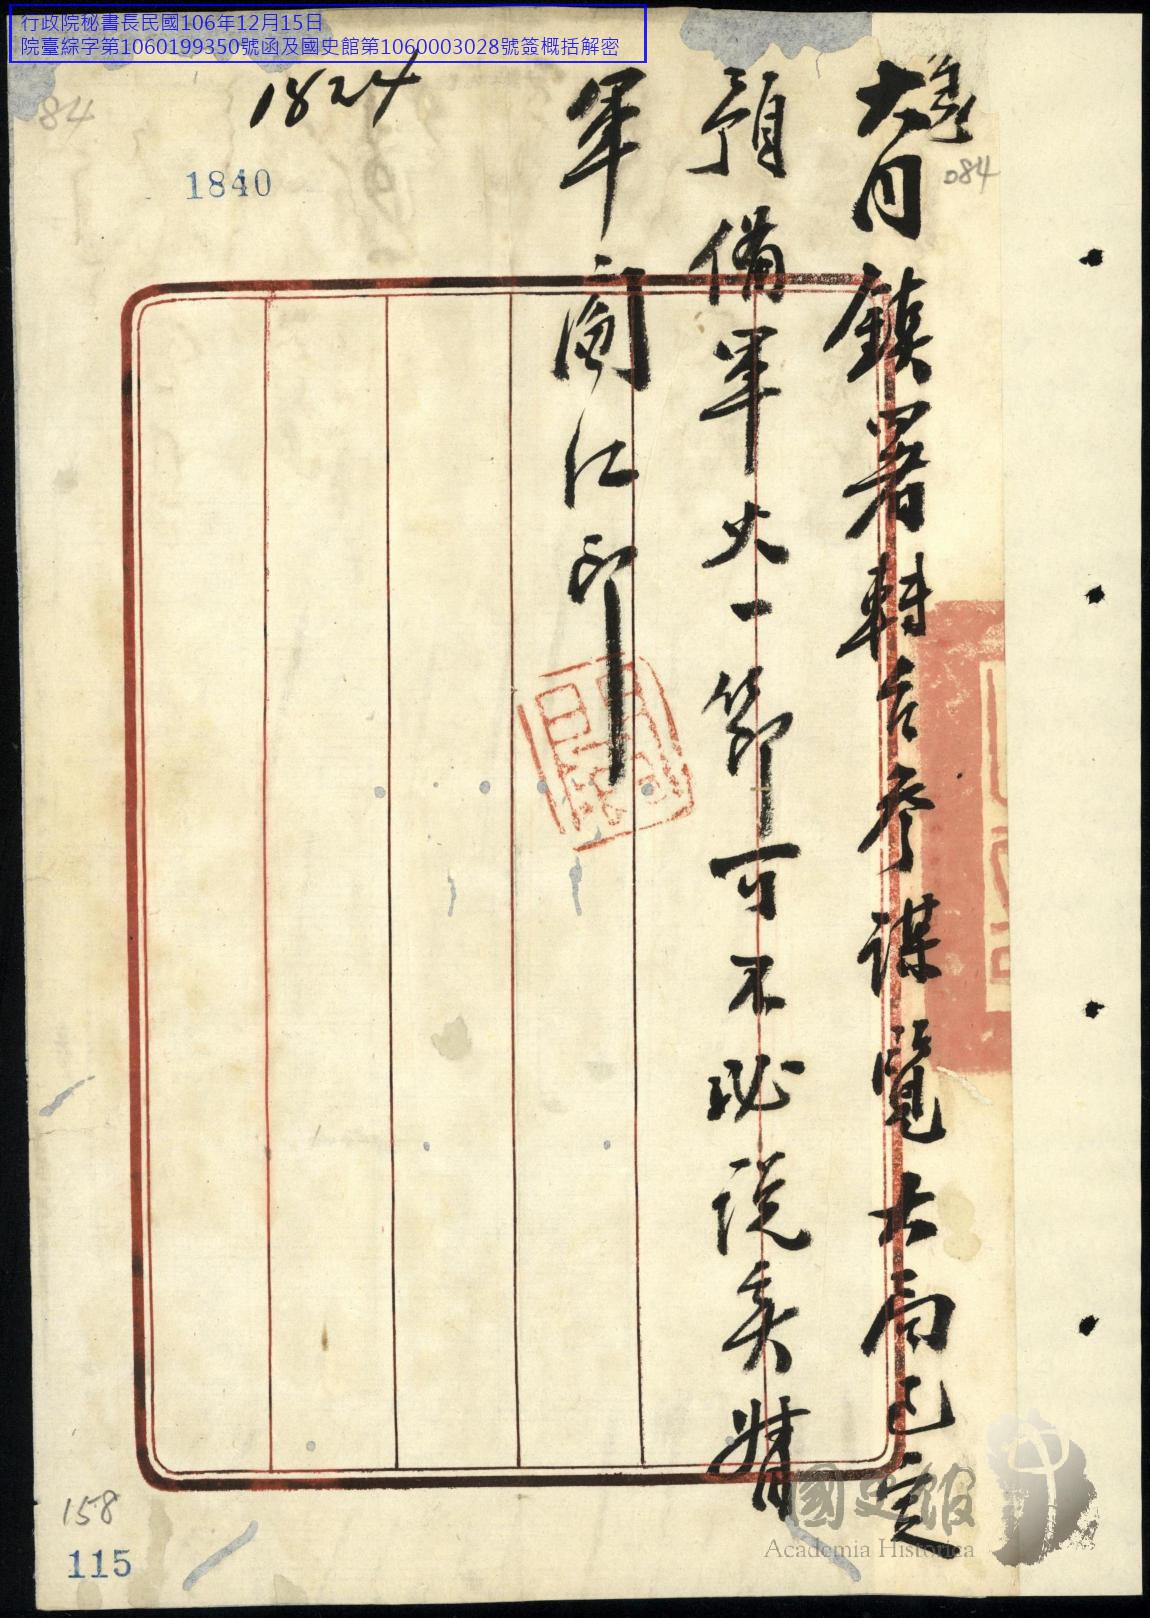 行政院秘書長民國106年12月15日
院臺綜字第1060199350號函及國史館第1060003028號簽概括解密
大同鎮署轉台參謀覽大局已定
預備軍火一節可不必說矣
軍閻江印
1824
1840
84
084
158
115
國史館
Academia Historica